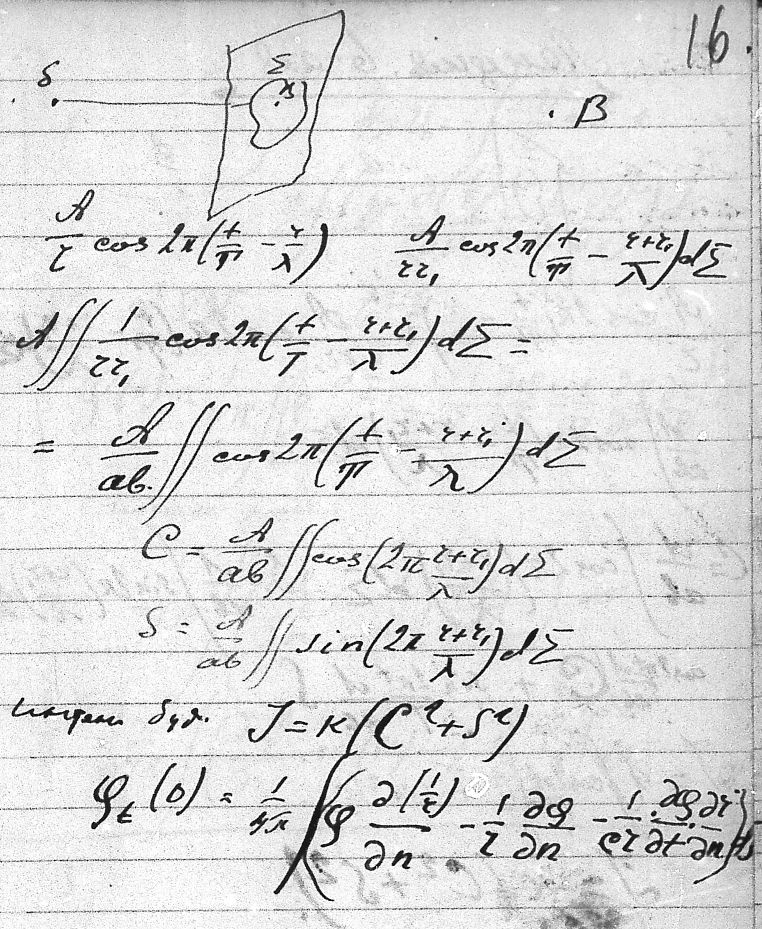 16.
S Σ n . B
A/r cos 2π(t/T − r/λ) A/rr₁ cos 2π(t/T − r+r₁/λ) dΣ
A∬ 1/rr₁ cos 2π(t/T − r+r₁/λ) dΣ =
= A/ab ∬ cos 2π(t/T − r+r₁/λ) dΣ
C = A/ab ∬ cos(2π r+r₁/λ) dΣ
S = A/ab ∬ sin(2π r+r₁/λ) dΣ
J = K(C² + S²)
φₜ(0) = 1/4π ∫(φ ∂(1/r)/∂n − 1/r ∂φ/∂n − 1/cr ∂φ/∂t ∂r/∂n) ds